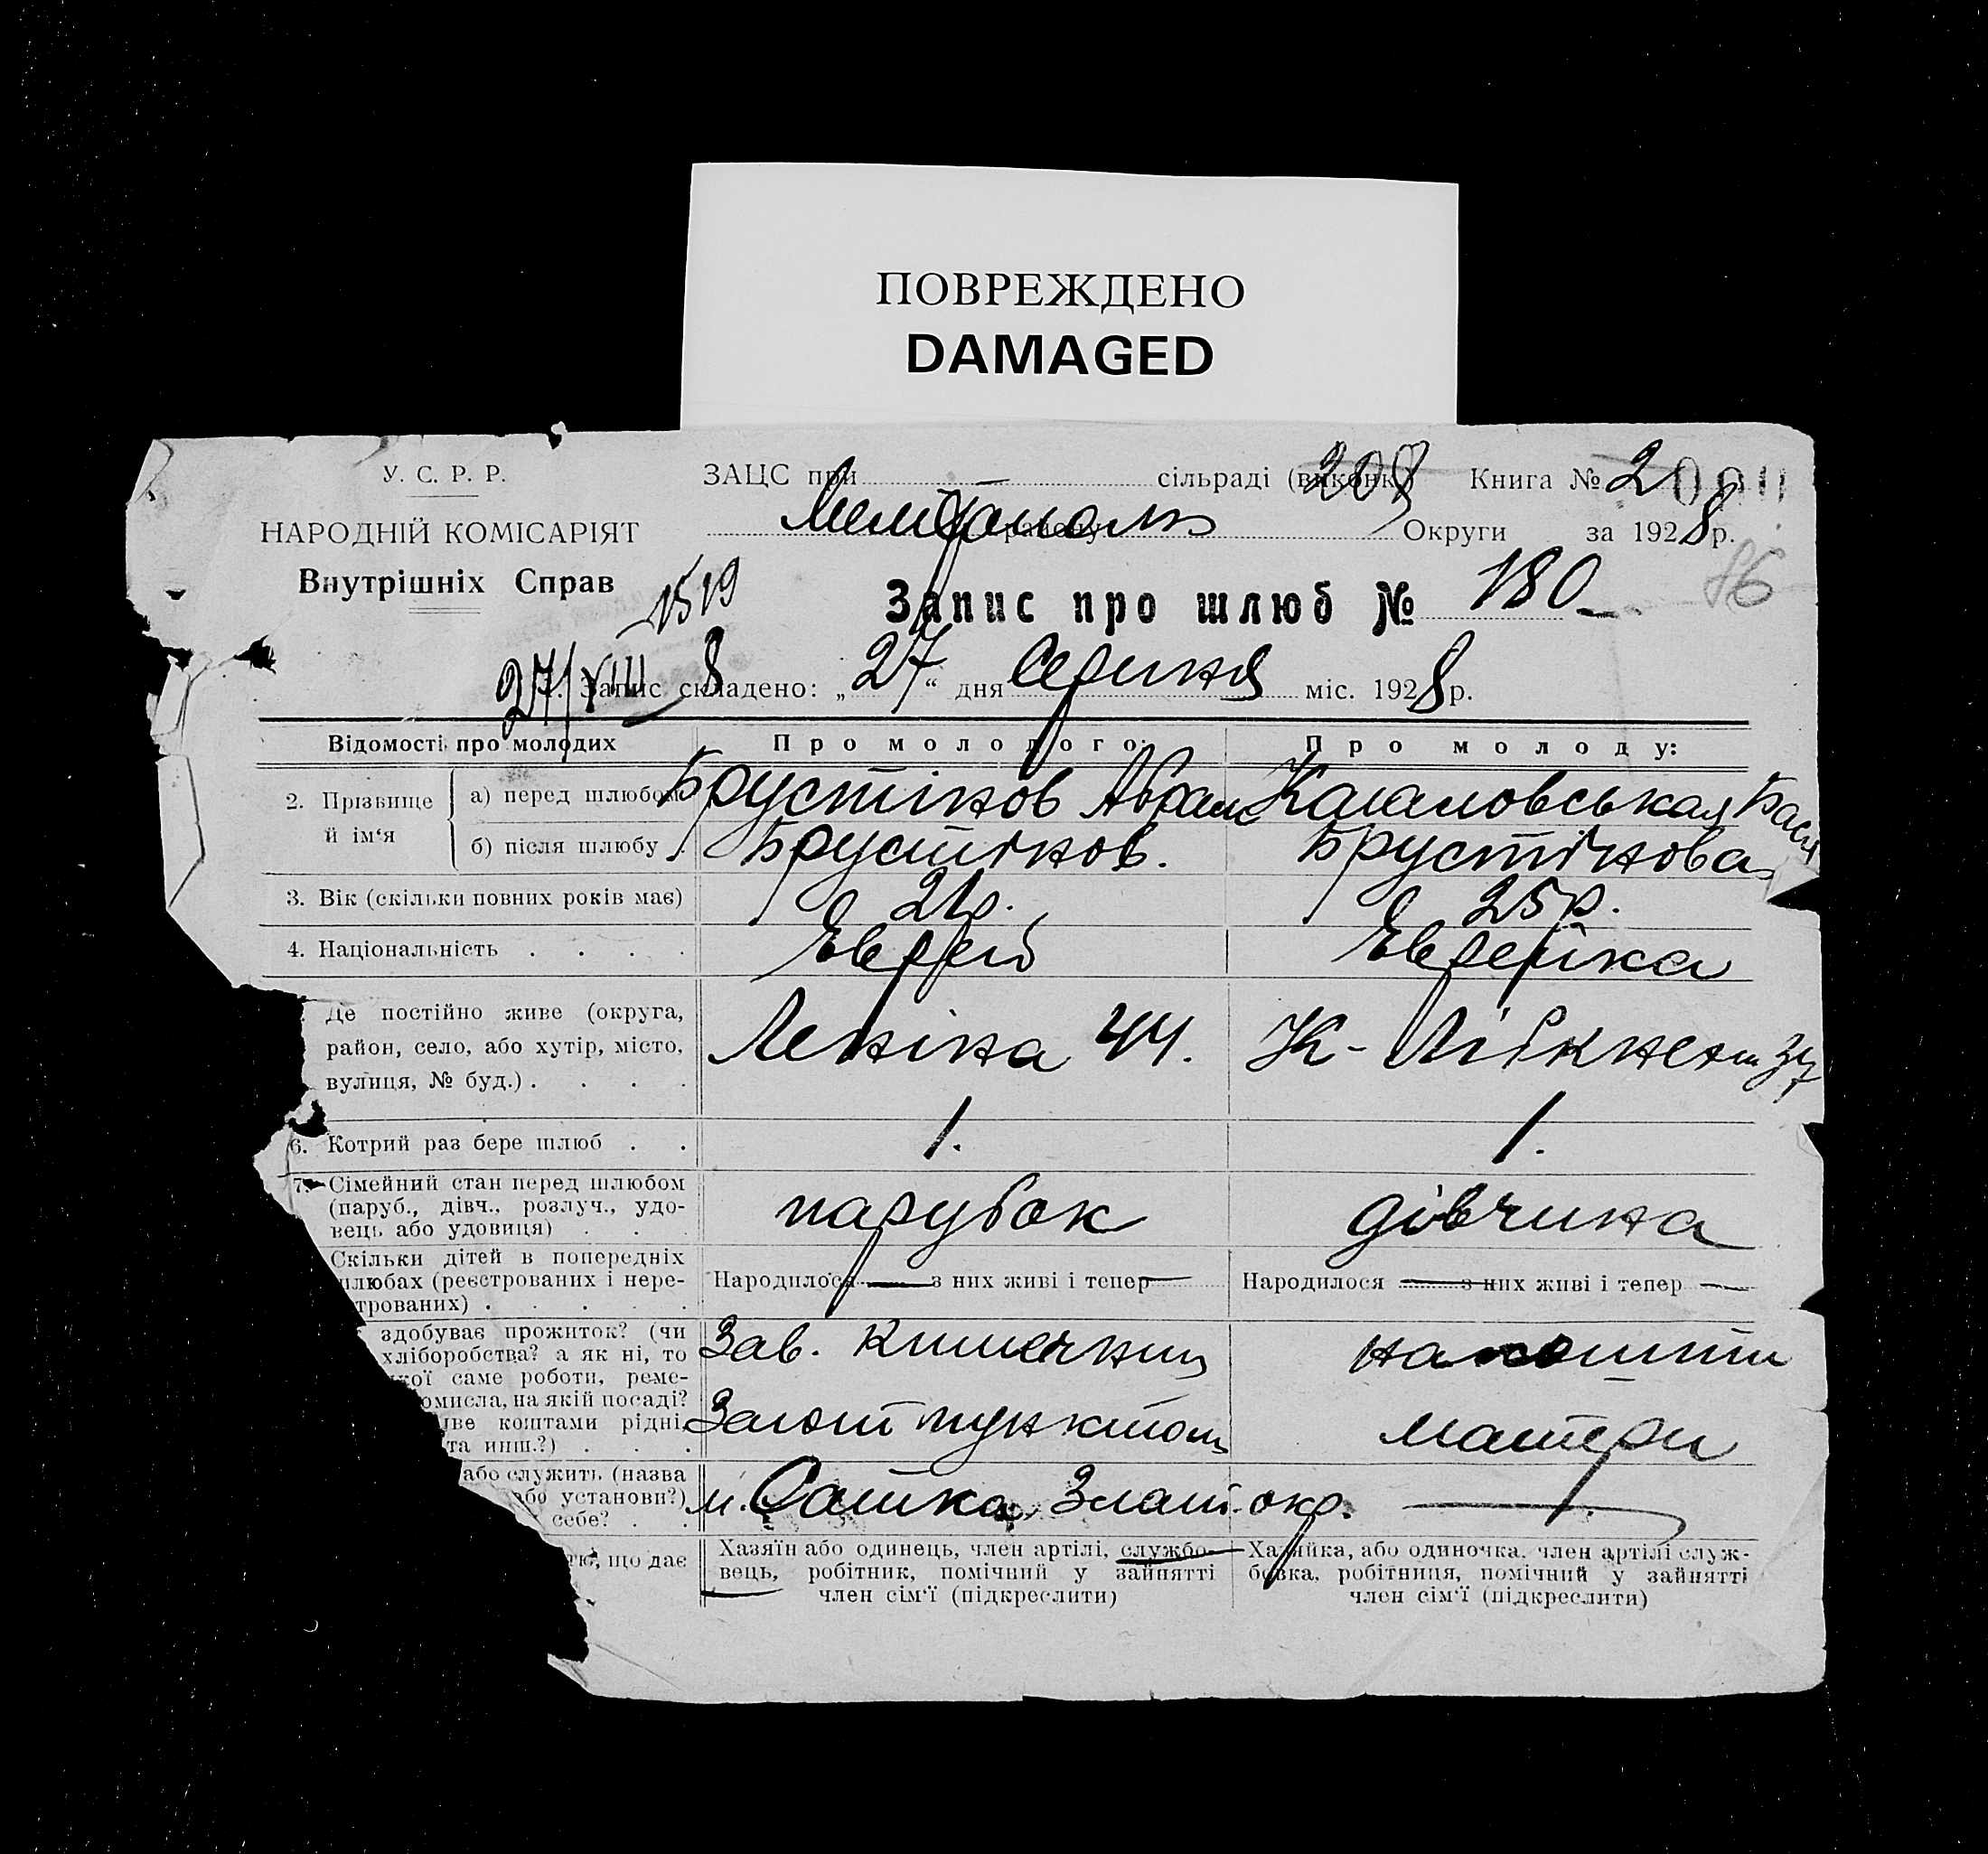 ПОВРЕЖДЕНО
DAMAGED
У. С. Р. Р.
НАРОДНІЙ КОМІСАРІЯТ
Внутрішніх Справ
ЗАЦС при сільраді (виконк.) 208 Книга № 2
Мелітополь району Округи за 1928 р.
1519
86
Запис про шлюб № 180
27/VIII 8
Запис складено: „27“ дня Серпня міс. 1928 р.
Відомості про молодих
Про молодого:
Про молоду:
2. Прізвище й ім‘я
а) перед шлюбом Брустінов Абрам Кагановськая Бася
б) після шлюбу Брустінов. Брустінова
3. Вік (скільки повних років має) 21р. 25р.
4. Національність . . . . Еврей Еврейка
Де постійно живе (округа,
район, село, або хутір, місто,
вулиця, № буд.) . . . .
Леніна 44. К-Лібкнехт 37
6. Котрий раз бере шлюб . . 1. 1.
7. Сімейний стан перед шлюбом
(паруб., дівч., розлуч., удо-
вець або удовиця) . . .
парубок дівчина
Скільки дітей в попередніх
шлюбах (реєстрованих і нере-
трованих) . . . . .
Народилося — з них живі і тепер —
Народилося — з них живі і тепер —
здобуває прожиток? (чи
хліборобства? а як ні, то
кої саме роботи, реме-
омисла, на якій посаді?
иве коштами рідні,
та инш.?) . . .
Зав. кишечним
пунктом
на кошти
матери
або служить (назва
або установи?)
себе? . .
м. Сатка, Злат. окр. —
тю, що дає
Хазяїн або одинець, член артілі, службо-
вець, робітник, помічний у зайнятті
член сім‘ї (підкреслити)
Хазяйка, або одиночка, член артілі служ-
бовка, робітниця, помічний у зайнятті
член сім‘ї (підкреслити)